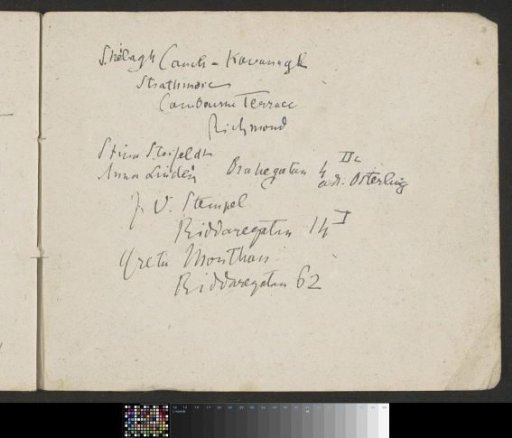 Shelagh Couch - Kavanagh
Strathmore
Cambourne Terrace
Richmond
Stina
Anna Lindén Brahegatan 4 II
adr. Österling
J. V. Stempel
Riddaregatan 14 I
Greta
Riddaregatan 62